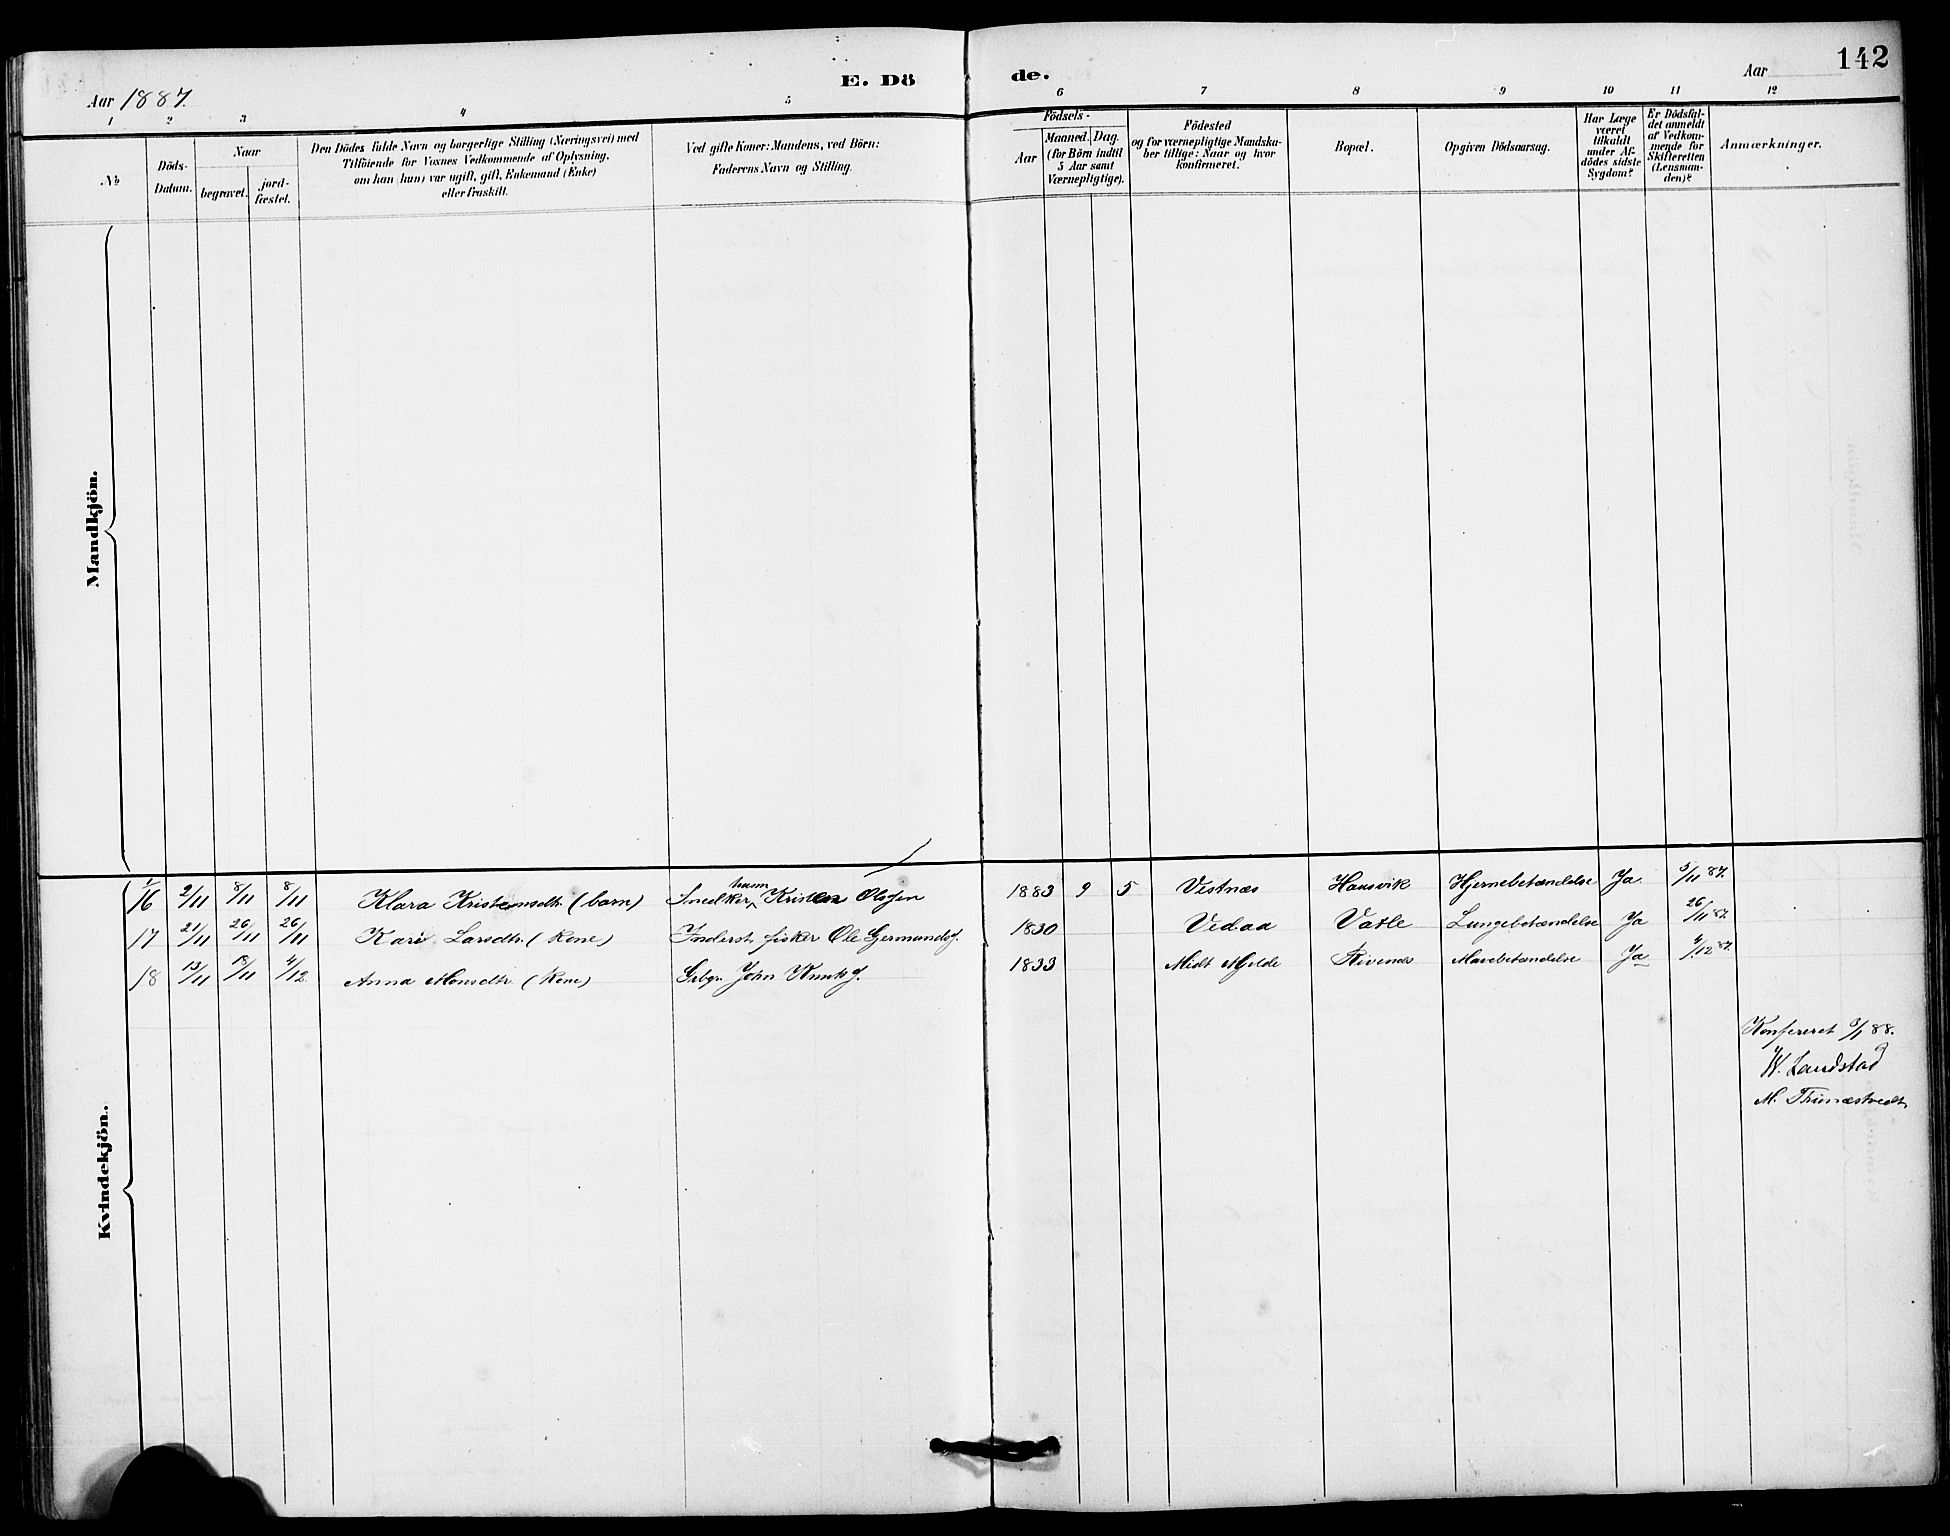 142
E. Dö de.
Aar 1887. Aar
1 2 3 4 5 6 7 8 9 10 11 12
№
Döds-Datum.
Naar
begravet.
jord-fæstet.
Den Dödes fulde Navn og borgerlige Stilling (Næringsvei) med
Tilföiende for Voxnes Vedkommende af Oplysning,
om han (hun) var ugift, gift, Enkemand (Enke)
eller fraskilt.
Ved gifte Koner: Mandens, ved Börn:
Faderens Navn og Stilling.
Födsels-
Aar
Maaned. Dag.
(for Börn indtil
5 Aar samt
Værnepligtige).
Födested
og for værnepligtige Mandska-
ber tillige: Naar og hvor
konfirmeret.
Bopæl.
Opgiven Dödsaarsag.
Har Læge
været
tilkaldt
under Af-
dödes sidste
Sygdom?
Er Dödsfal-
det anmeldt
af Vedkom-
mende for
Skifteretten
(Lensman-
den)?
Anmærkninger.
Mandkjön.
Kvindekjön.
16 2/11 8/11 8/11 Klara Kristensdtr. (barn) Snedker, husm Kristen Olsen 1883 9 5 Vestnæs Hausvik Hjernebetændelse Ja 5/11 87.
17 21/11 26/11 26/11 Kari Larsdtr. (Kone) Inderst fisker Ole Germundsf. 1830 Vedaa Vatle Lungebetændelse Ja 26/11 87.
18 13/11 18/11 4/12 Anna Monsdtr. (Kone) Grbgr. John Knutsf. 1833 Midt Mjelde Rivenes Mavebetændelse Ja 4/12 87.
Konfereret 3/1 88.
W. Landstad
M. Trunæstvedt